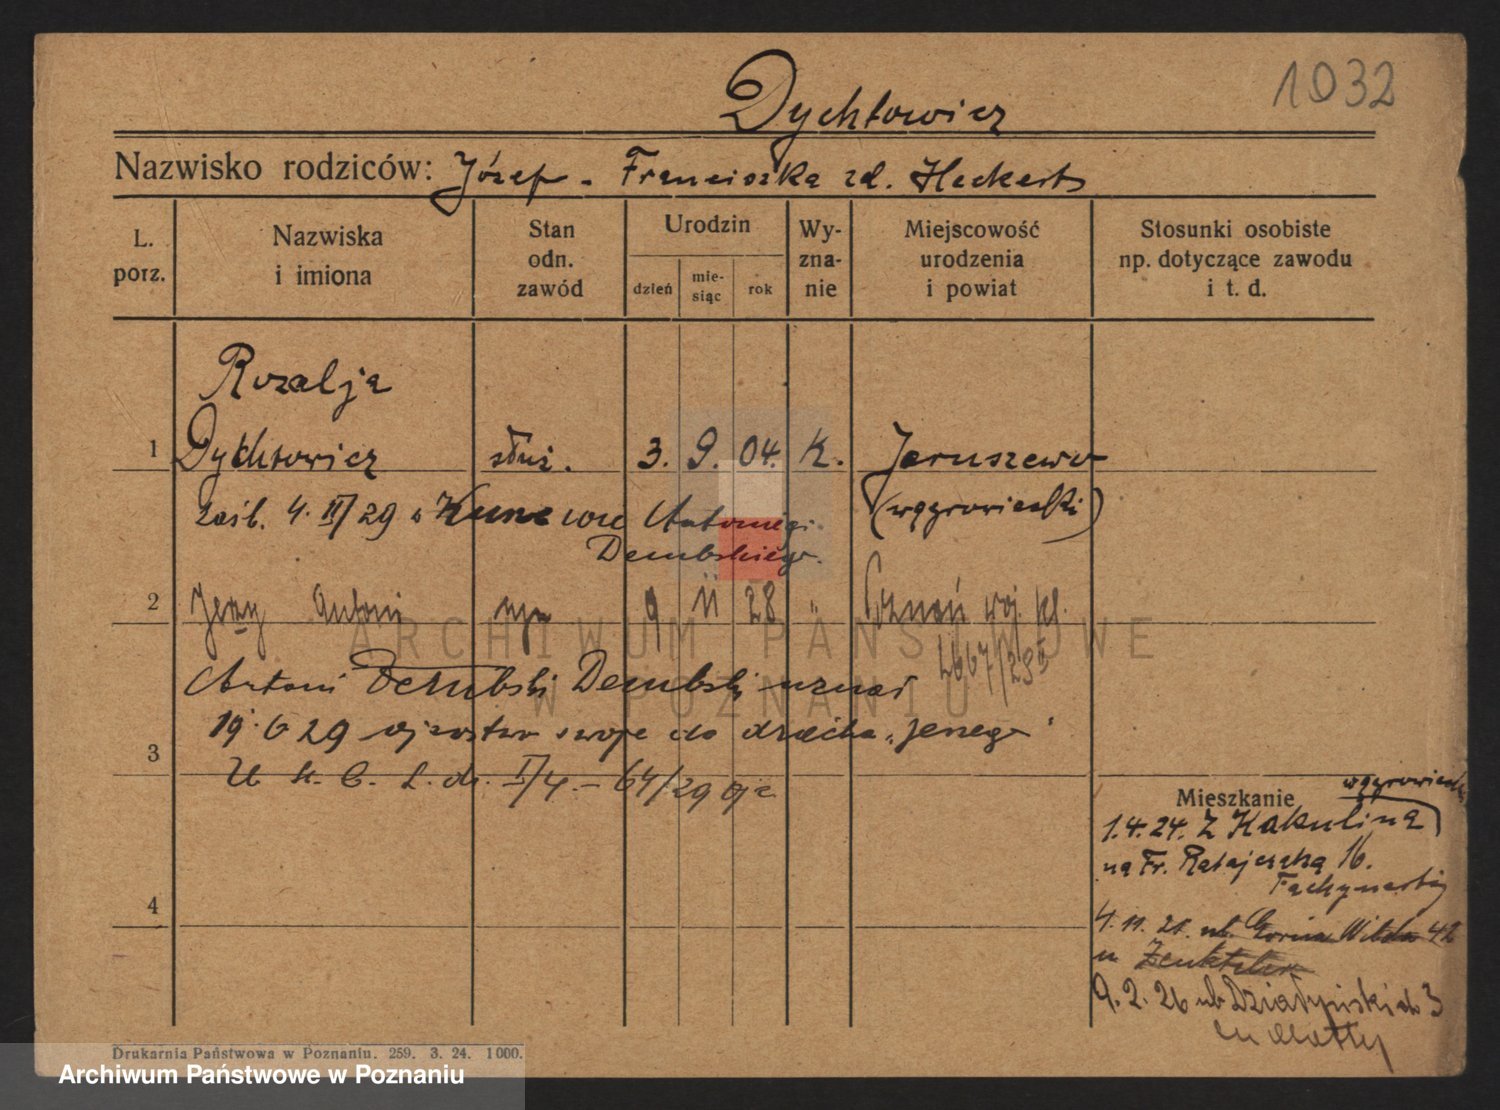 1032
Dychtowicz
Nazwisko rodziców: Józef - Franciszka zd. Heckert
L. porz.
Nazwiska i imiona
Stan odn. zawód
Urodzin
dzień
mie-siąc
rok
Wy-zna-nie
Miejscowość urodzenia i powiat
Stosunki osobiste np. dotyczące zawodu i t. d.
Rozalja
1 Dychtowicz służ. 3. 9. 04. K. Jaruszewo
zaśb. 4. II/29 Antoniego (wągrowiecki)
Dembskiego.
2 Jerzy Antoni syn 9 11 28 " Poznań woj.
ARCHIWUM PAŃSTWOWE
W POZNANIU
Antoni Dembski uznał
19 6 29 ojcostwo swoje do dziecka „Jerzego"
3
64/29
wągrowiecki
Mieszkanie
1.4.24. Z Kakulina
na Fr. Ratajczaka 16.
4
4. 11. 21. ul. Górna Wilda 42
u
9. 2. 26 ul. Działyńskich 3
Drukarnia Państwowa w Poznaniu. 259. 3. 24. 1 000.
Archiwum Państwowe w Poznaniu